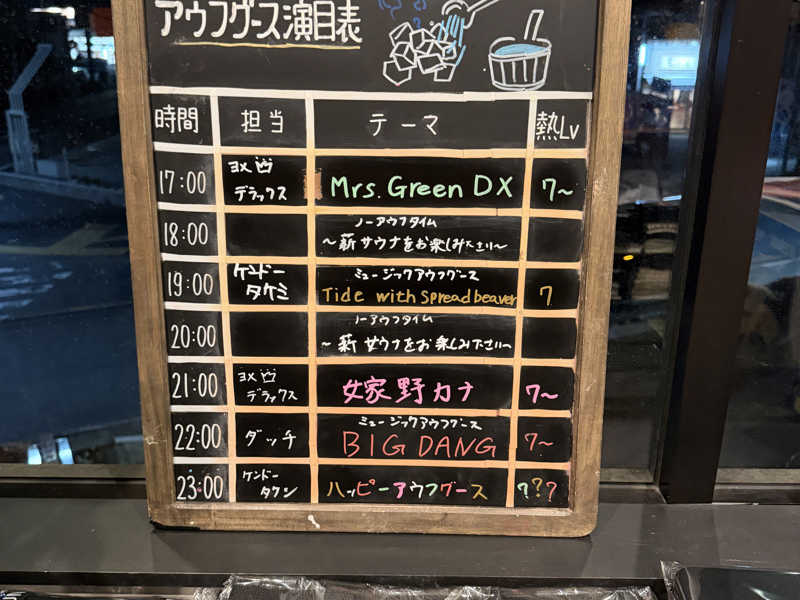 アウフグース演目表
時間 担当 テーマ 熱Lv
17:00 ヨメ デラックス Mrs. Green DX 7~
18:00 ノーアウフタイム
~薪サウナをお楽しみ下さい~
19:00 ケンドー タケミ ミュージックアウフグース
Tide with Spreadbeaver 7
20:00 ノーアウフタイム
~薪サウナをお楽しみ下さい~
21:00 ヨメ デラックス 嫁野カナ 7~
22:00 ダッチ ミュージックアウフグース
BIG DANG 7~
23:00 ケンドー タケシ ハッピーアウフグース ???